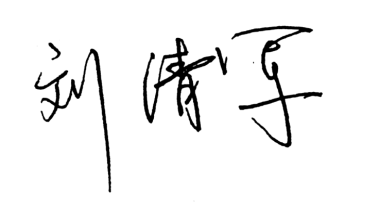 刘清军